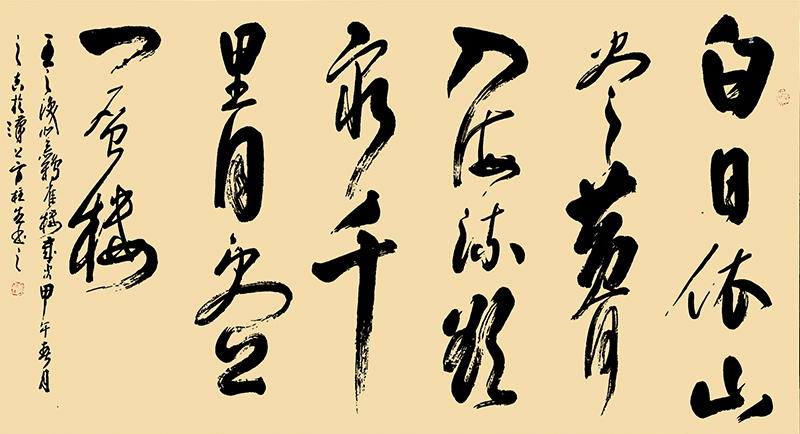 白日依山
尽黄河
入海流欲
穷千
里目更上
一层楼
王之涣登鹳雀楼 甲午春月
之吉於 书之